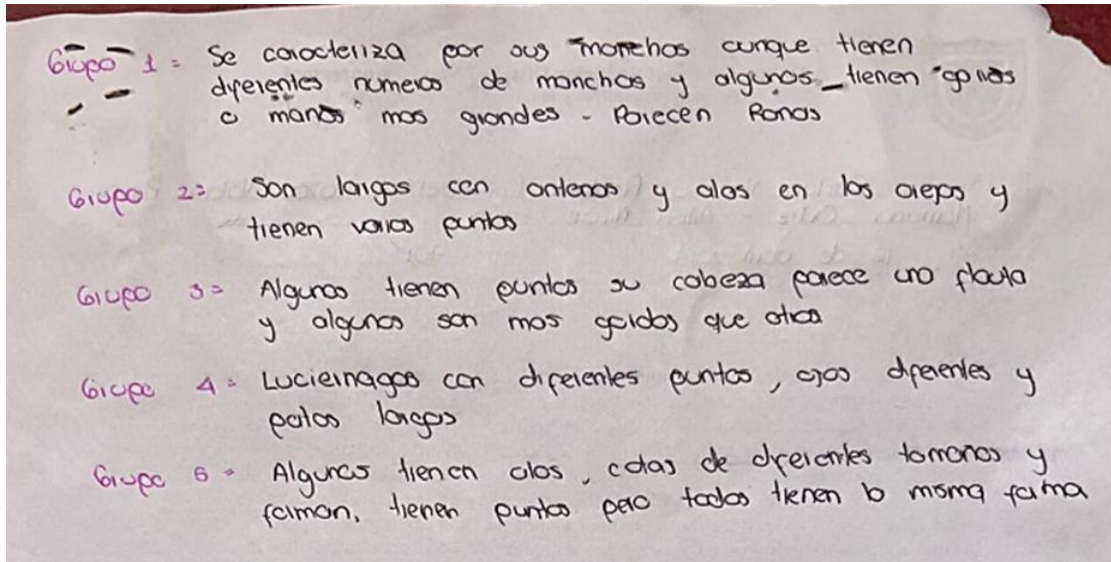 Grupo 1 = Se caracteriza por sus manchas aunque tienen
diferentes numeros de manchas y algunos tienen
o manos mas grandes - Parecen Ranas
Grupo 2 = Son largos con antenas y alas en los y
tienen varios puntos
Grupo 3 = Algunos tienen puntos su cabeza parece una flauta
y algunos son mas gordos que otros
Grupo 4 = Luciernagas con diferentes puntos, ojos diferentes y
patas largas
Grupo 5 = Algunos tienen alas, colas de diferentes tamaños y
forman, tienen puntos pero todos tienen la misma forma